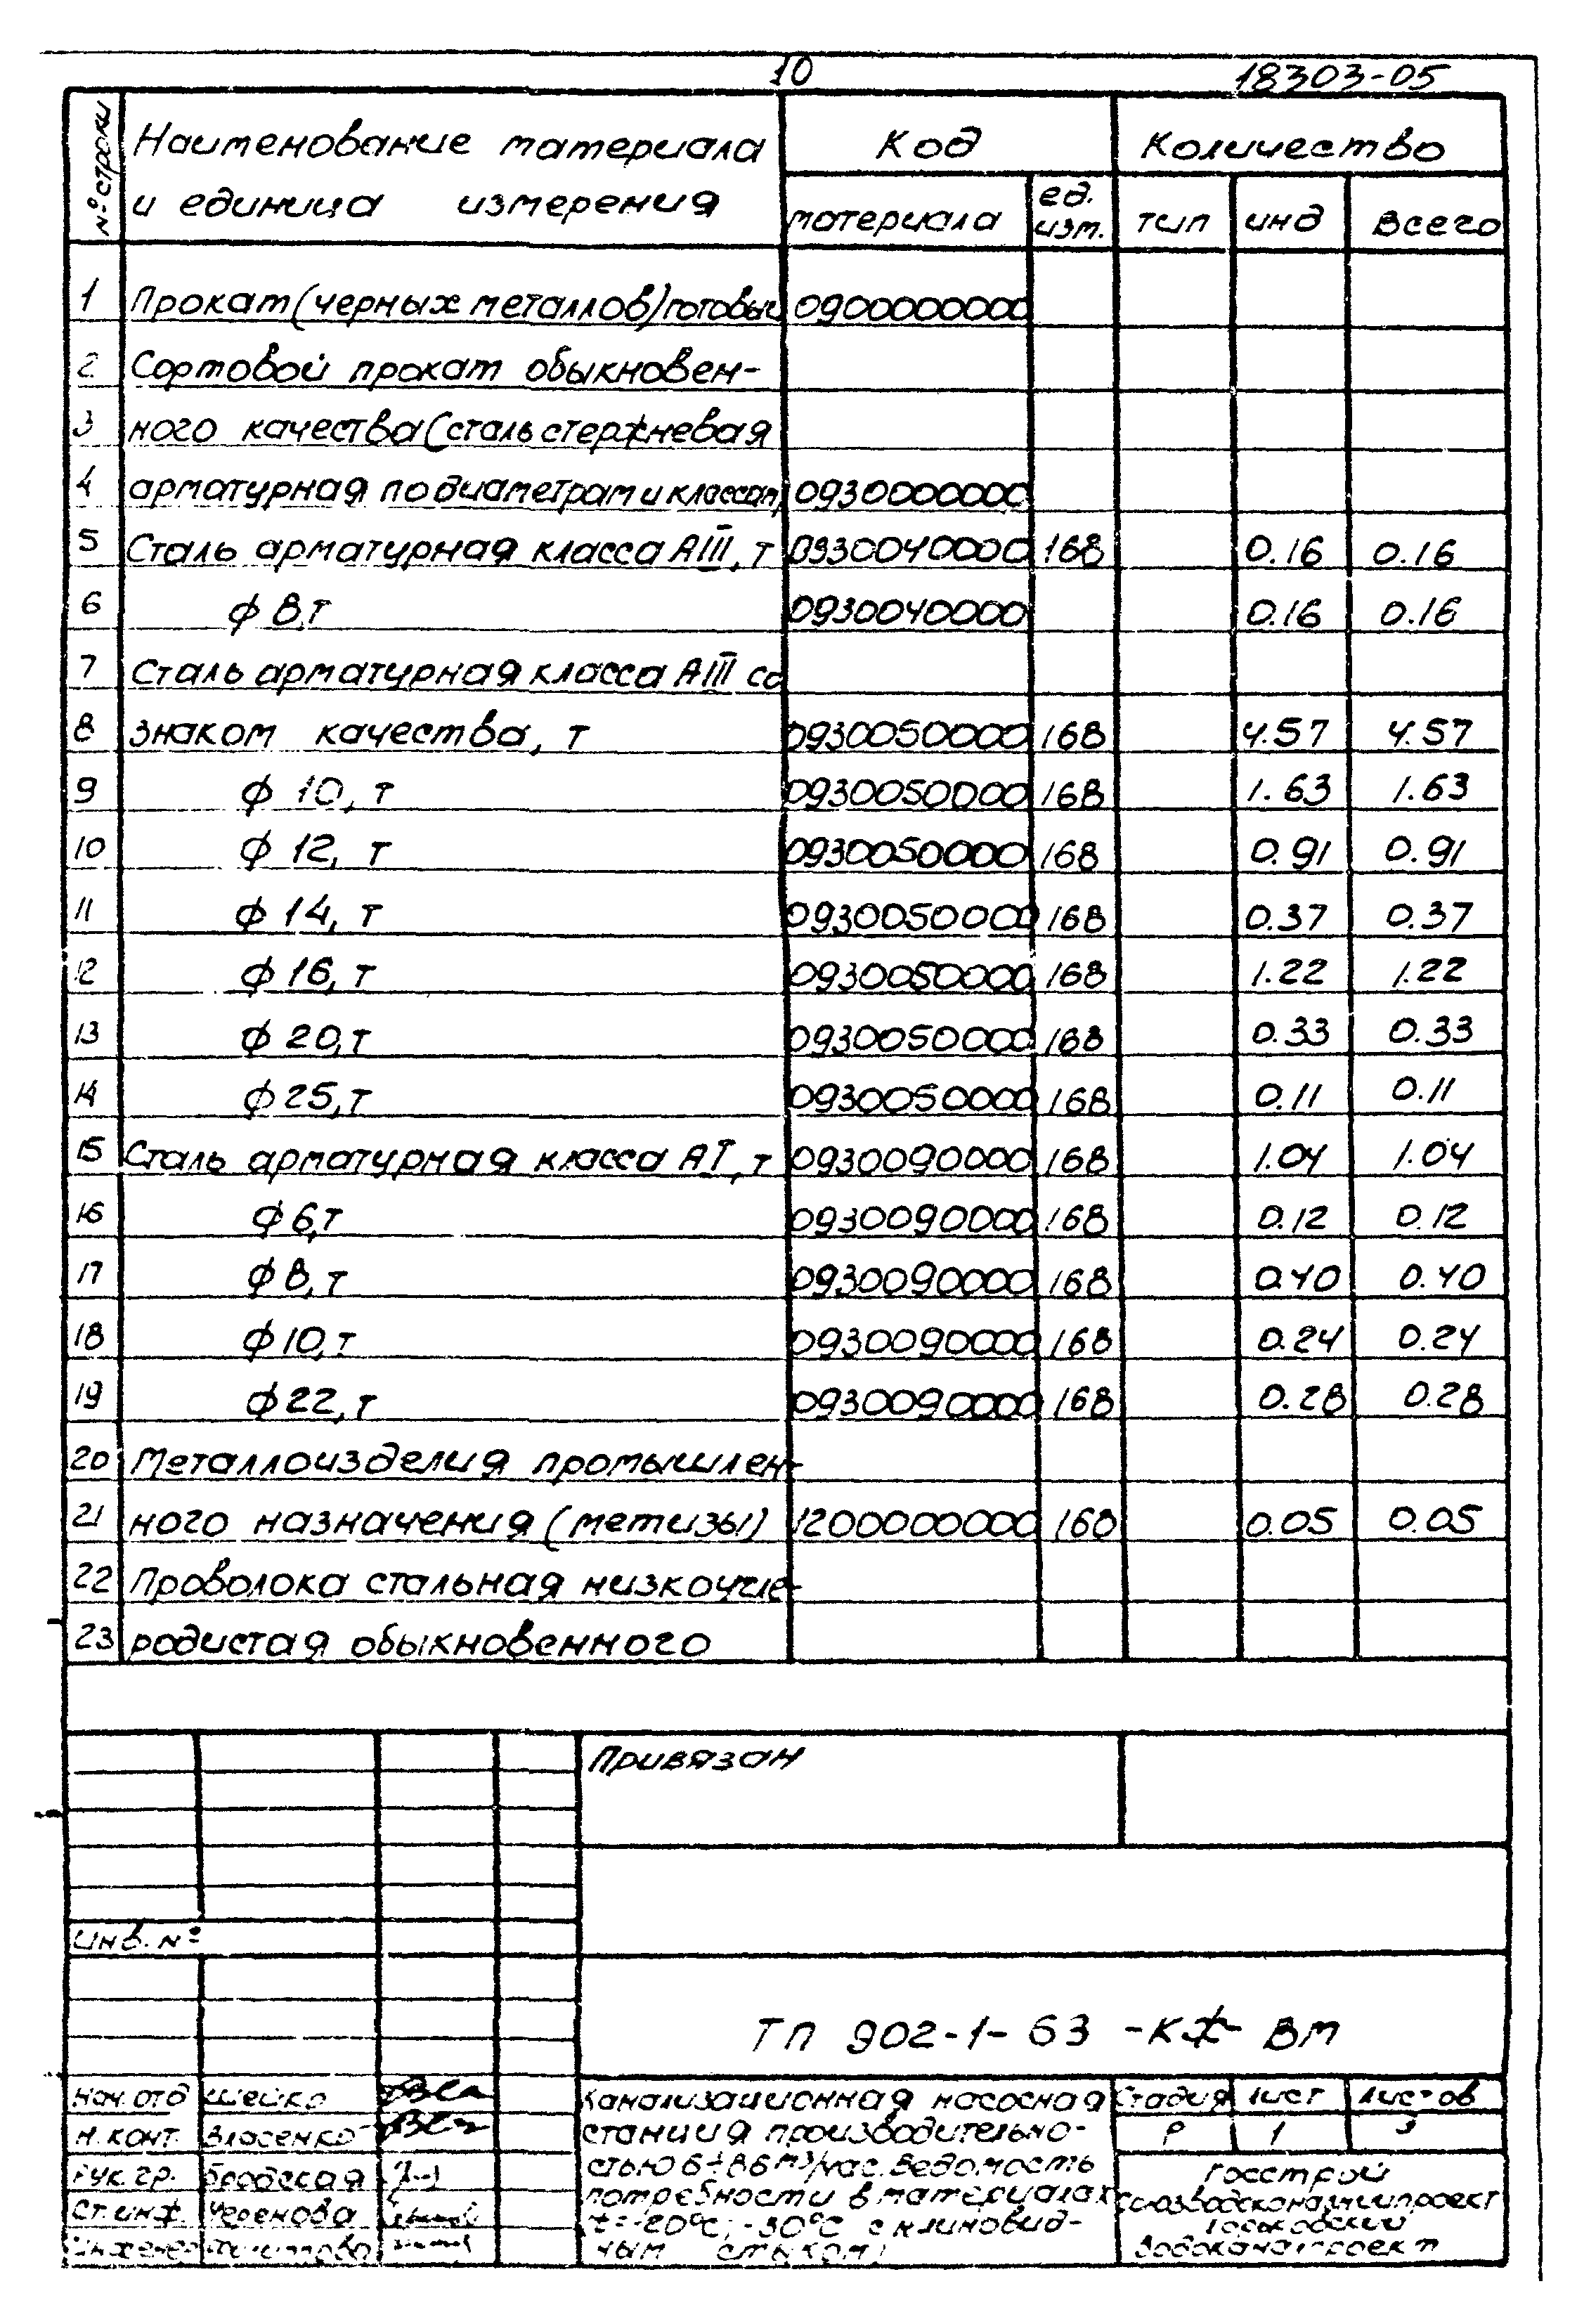 10
18303-05
№ строки
Наименование материала
и единица измерения
Код
Количество
материала
ед.
изм.
тип
инд
Всего
1 Прокат (черных металлов) готовый 0900000000
2 Сортовой прокат обыкновен-
3 ного качества (сталь стержневая
4 арматурная по диаметрам и классам) 0930000000
5 Сталь арматурная класса АIII, т 0930040000 168 0.16 0.16
6 ф 8,т 0930040000 0.16 0.16
7 Сталь арматурная класса АIII со
8 знаком качества, т 0930050000 168 4.57 4.57
9 ф 10, т 0930050000 168 1.63 1.63
10 ф 12, т 0930050000 168 0.91 0.91
11 ф 14, т 0930050000 168 0.37 0.37
12 ф 16, т 0930050000 168 1.22 1.22
13 ф 20,т 0930050000 168 0.33 0.33
14 ф 25,т 0930050000 168 0.11 0.11
15 Сталь арматурная класса АI, т 0930090000 168 1.04 1.04
16 ф 6,т 0930090000 168 0.12 0.12
17 ф 8,т 0930090000 168 0.40 0.40
18 ф 10,т 0930090000 168 0.24 0.24
19 ф 22,т 0930090000 168 0.28 0.28
20 Металлоизделия промышлен-
21 ного назначения (метизы) 1200000000 168 0.05 0.05
22 Проволока стальная низкоугле-
23 родистая обыкновенного
Привязан
инв. №
ТП 902-1-63 -КЖ- ВМ
Нач. отд Шейко
Н. конт. Власенко
Рук. гр. Бродская
Ст. инж. Черенова
Инженер
Канализационная насосная
станция производительно-
стью 6÷86 м³/час. Ведомость
потребности в материалах
t=-20°С; -30°С с клиновид-
ным стыком)
Стадия Лист Листов
Р 1 3
Госстрой
Союзводоканалниипроект
Горьковский
Водоканалпроект